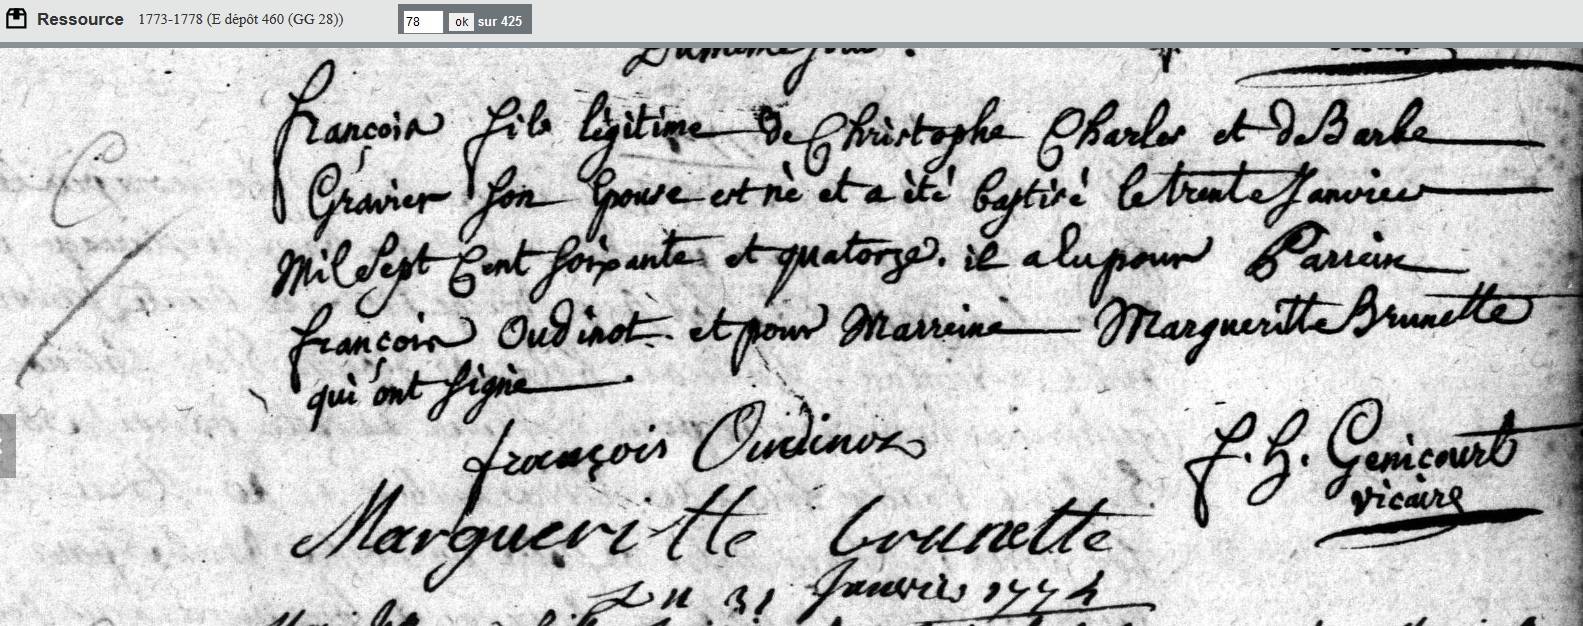 Ressource 1773-1778 (E dépôt 460 (GG 28)) 78 ok sur 425
Du même jour.
françois fils légitime de Christophe Charles et de Barbe
Gravier son épouse est né et a été baptisé le trente Janvier
Mil Sept Cent Soixante et quatorze. il a eu pour Parrein
françois Oudinot et pour Marreine Margueritte Brunette
qui ont signé
françois Oudinot
f. h. Genicourt
vicaire
Margueritte brunette
Du 31 Janvier 1774